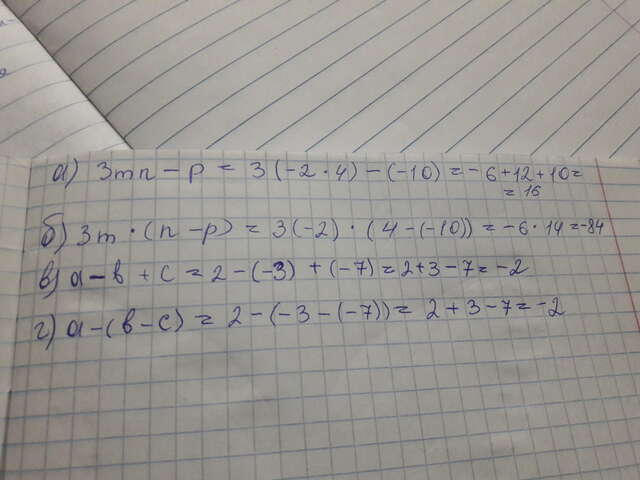 а) 3mn - p = 3(-2·4) - (-10) = -6+12+10=
= 16
б) 3m·(n-p) = 3(-2)·(4-(-10)) = -6·14=-84
в) a-b+c=2-(-3)+(-7)=2+3-7=-2
г) a-(b-c) = 2-(-3-(-7))= 2+3-7=-2